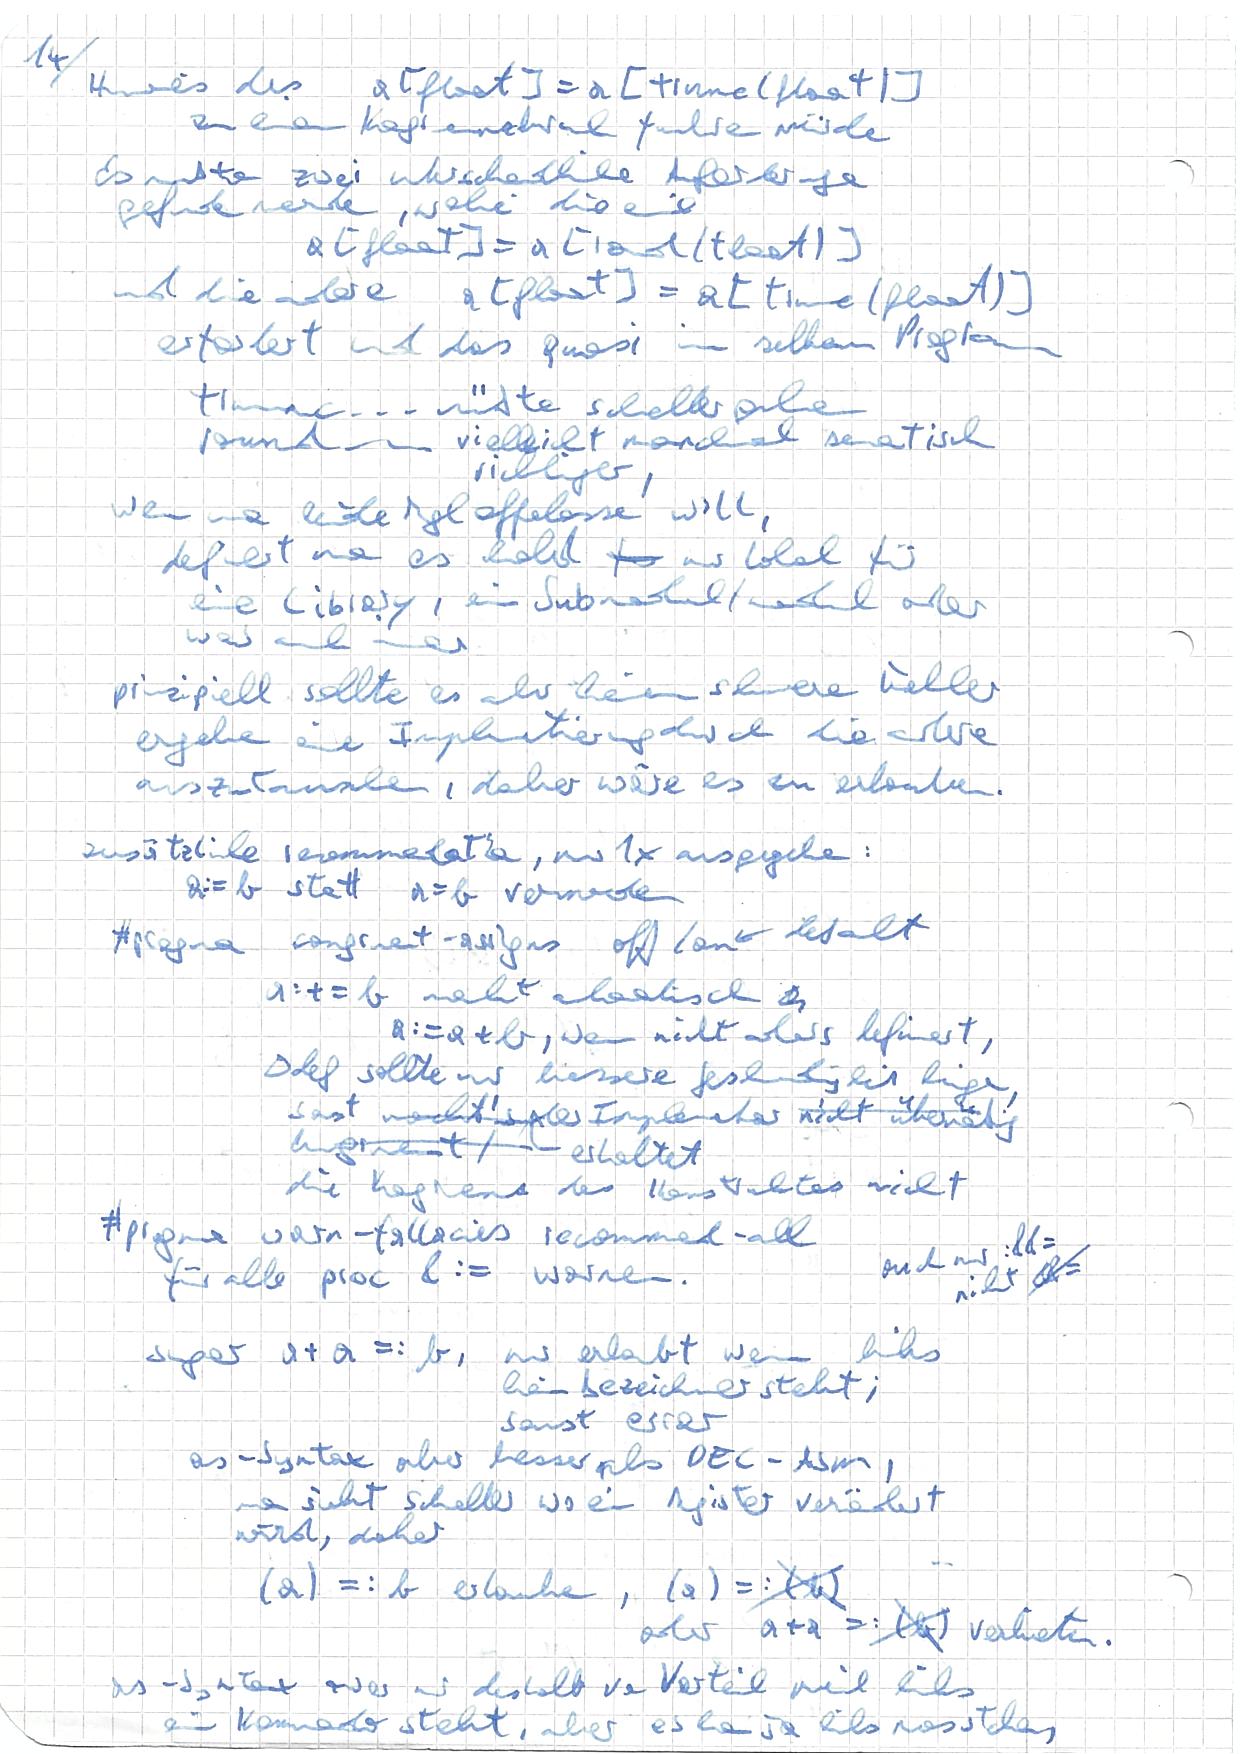 14/
des a[float] = a[trunc(float)]
zu einem würde
Es müßte zwei unterschiedliche
gefunden werden, wobei die eine
a[float] = a[round(float)]
und die andere a[float] = a[trunc(float)]
erfordert und das quasi im selben Program
trunc... müßte schneller gehen
round vielleicht manchmal semantisch
richtiger,
wenn man beide will,
definiert man es halt nur lokal für
eine Library, ein Submodul/modul oder
was auch immer
prinzipiell sollte es aber keinen schweren Fehler
ergeben eine Implementierung durch die andere
auszutauschen, daher wäre es zu erlauben.
zusätzliche recommendation, nur 1x ausgegeben:
a:=b statt a=b verwenden
#pragma congruent-assigns off/on default
a:+=b macht automatisch
a:=a+b, wenn nicht anders definiert,
sollte nur bessere bringen,
sonst der Implementator
erhaltet
die des Konstruktes nicht
#pragma warn-fallacies recommend-all
für alle proc &:= warnen.
auch nur :&&=
nicht
super a+a =: b, nur erlaubt wenn links
kein bezeichner steht;
sonst error
as-Syntax aber besser als DEC-Asm,
man sieht schneller wo ein Register verändert
wird, daher
(a) =: b erlauben, (a) =: (b)
oder a+a =: (b) verbieten.
as-Syntax zwar nur deshalb von Vorteil weil links
ein Kommando steht, aber es kann ja links